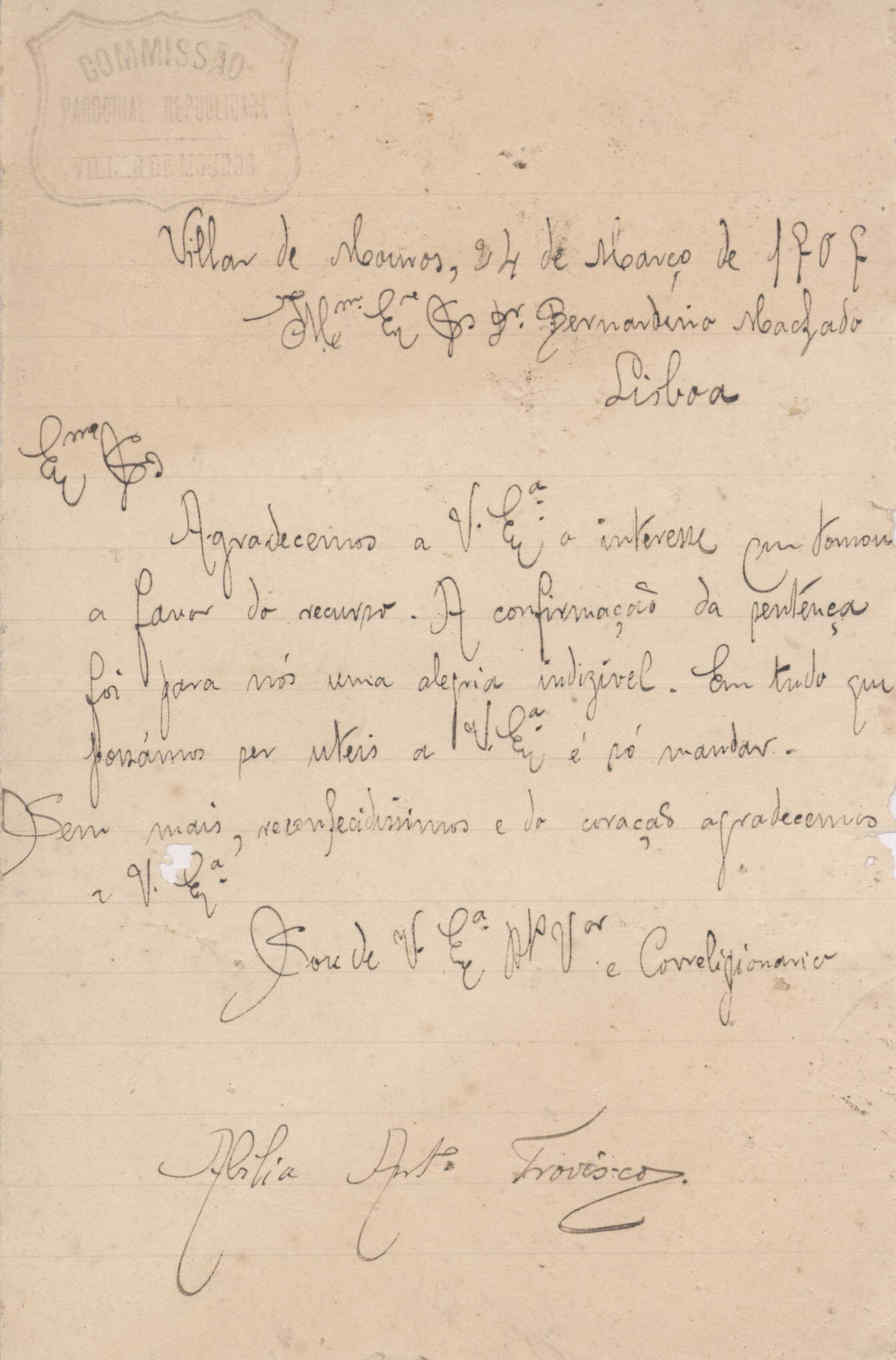 COMMISSÃO
PAROCHIAL REPUBLICANA
VILLAR DE MOUROS
Villar de Mouros, 24 de Março de 1909
Illmo. Exmo Snr Dr. Bernardino Machado
Lisboa
Exmo Snr
Agradecemos a V. Exa. o interesse que tomou
a favor do recurso. A confirmação da senténça
foi para nós uma alegria indizivel. Em tudo que
possâmos ser uteis a V. Exa. é só mandar.
Sem mais, reconhecidissimos e do coração agradecemos
a V. Exa.
Sou de V. Exa. Atto Vor. e Correligionario
Abilia Anto. Trovisco.